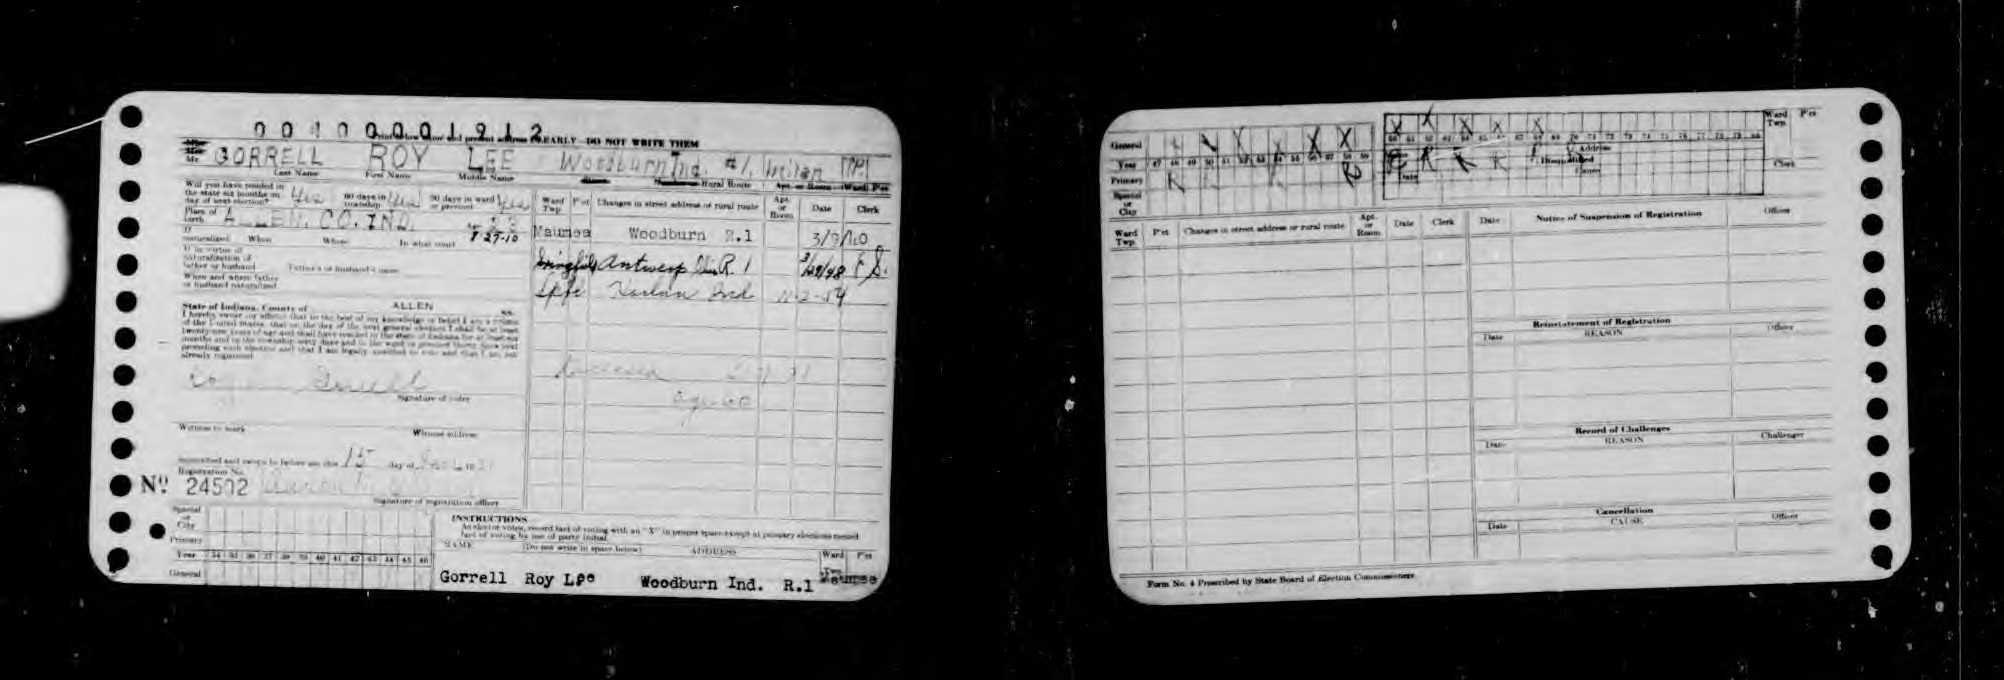 0040000 1912
Print below name and present address CLEARLY DO NOT WRITE THEM
Mr. GORRELL ROY LEE Woodburn Ind. #1, Milan
Last Name First Name Middle Name Rural Route Apt. or Room Ward Pct
Will you have resided in
the state six months on Yes 60 days in township Yes 30 days in ward or precinct Yes
day of next election?
Place of birth ALLEN. CO. IND. Age
8-27-10
If naturalized When Where In what court
If in virtue of
naturalization of
father or husband Father's or husband's name
When and where father
or husband naturalized
State of Indiana, County of ALLEN ss:
I hereby swear (or affirm) that to the best of my knowledge or belief I am a citizen
of the United States, that on the day of the next general election I shall be at least
twenty-one years of age and shall have resided in the state of Indiana for at least six
months and in the township sixty days and in the ward or precinct thirty days next
preceding such election and that I am legally entitled to vote and that I am not
already registered
Gorrell
Signature of voter
Witness to mark Witness address
Subscribed and sworn to before me this 15 day of
Registration No.
No. 24502
Signature of registration officer
Ward Twp. P'ct Changes in street address or rural route Apt. or Room Date Clerk
Maumee Woodburn R.1
Springfield Antwerp R. 1 3/29/48
Harlan Ind 54
Special or City
Primary
Year 34 35 36 37 38 39 40 41 42 43 44 45 46
General
INSTRUCTIONS
As elector votes, record fact of voting with an "X" in proper space except at primary elections record
fact of voting by use of party initial.
NAME (Do not write in space below) ADDRESS Ward Twp. P'ct
Gorrell Roy Lee Woodburn Ind. R.1 Maumee
General X X X X
Year 47 48 49 50 51 52 53 54 55 56 57 58 59
Primary R R R
Special or City
X X X X X
60 61 62 63 64 65 66 67 68 69 70 71 72 73 74 75 76 77 78 79 80
Ward Twp. P'ct
Address
Disqualified
Date Cause Clerk
Ward Twp. P'ct Changes in street address or rural route Apt. or Room Date Clerk
Date Notice of Suspension of Registration Officer
Reinstatement of Registration
Date REASON Officer
Record of Challenges
Date REASON Challenger
Cancellation
Date CAUSE Officer
Form No. 4 Prescribed by State Board of Election Commissioners